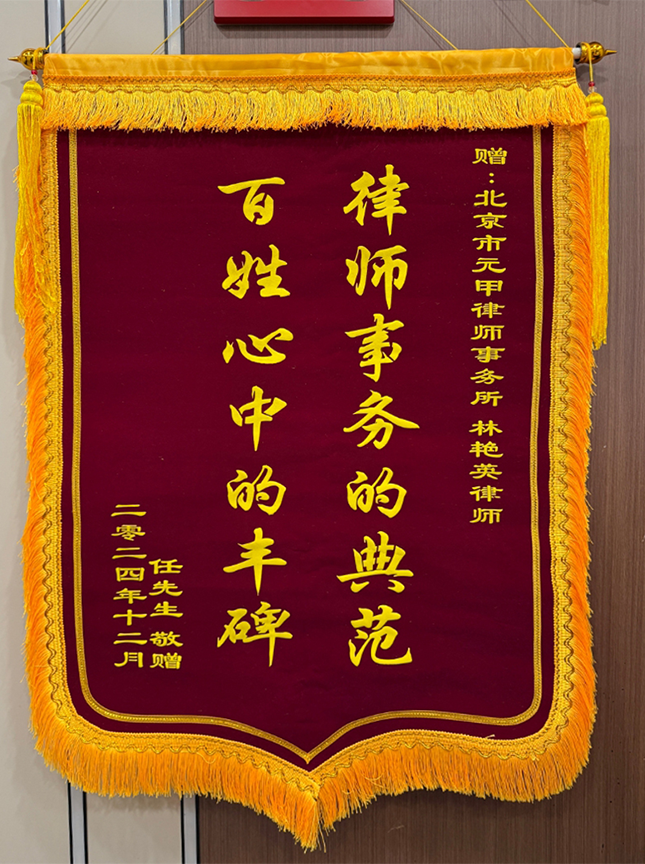 赠：北京市元甲律师事务所 林艳英律师
律师事务的典范
百姓心中的丰碑
任先生 敬赠
二零二四年十二月